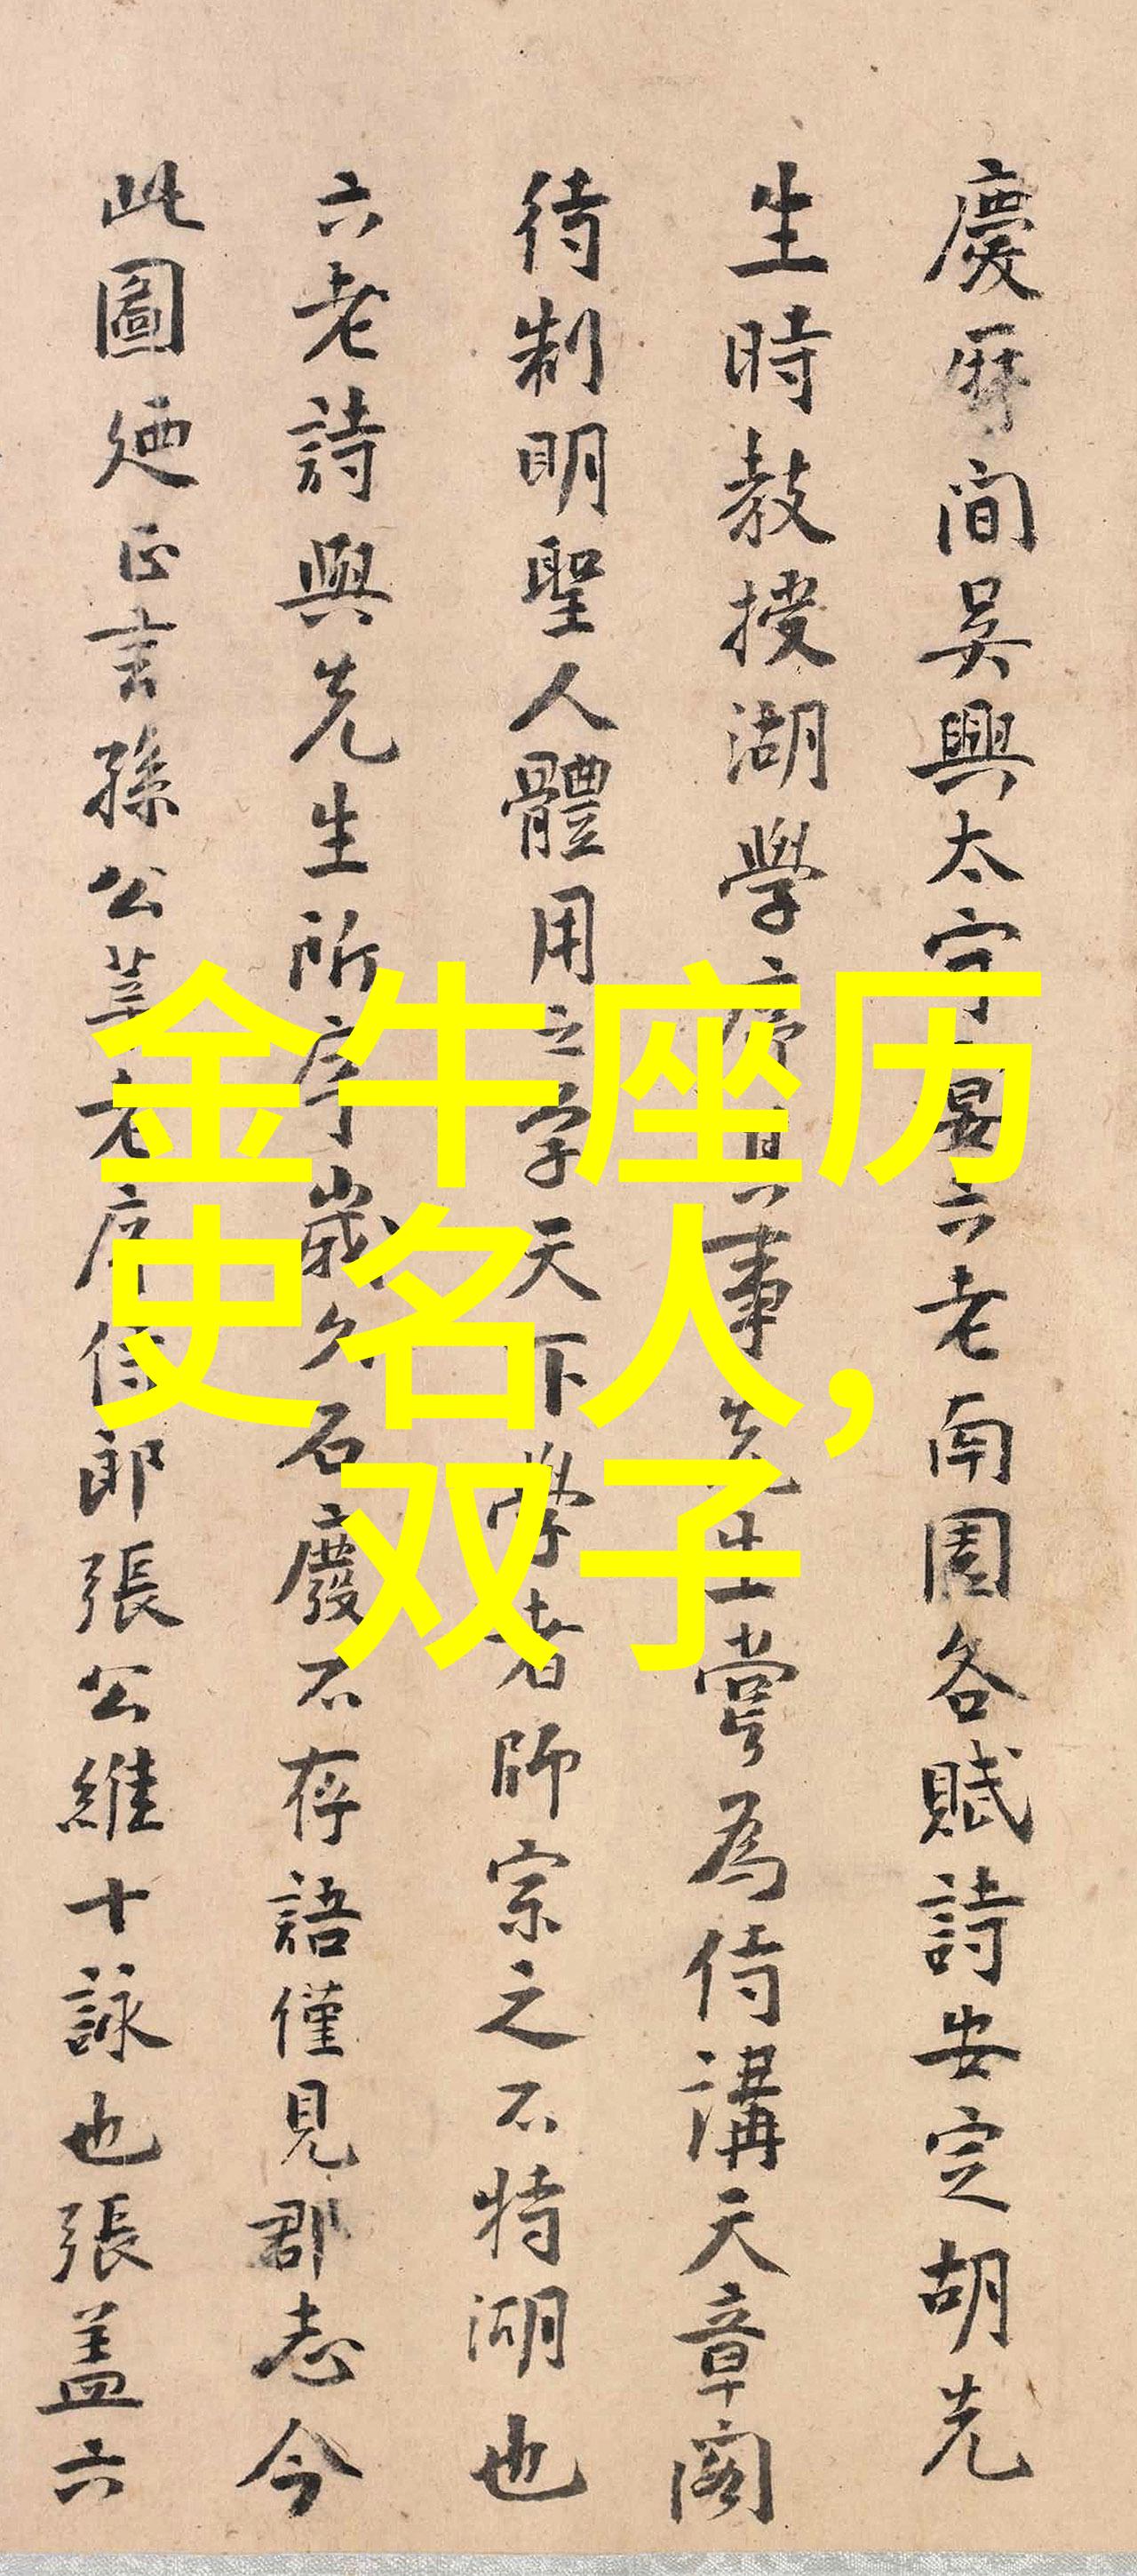 慶曆間吳興太守宴六老南園各賦詩安定胡先
生時教授湖學序其事先生嘗為侍講天章閣
待制明聖人體用之學天下學者師宗之不特湖也
六老詩與先生所序歲久石廢不存語僅見郡志今
此圖廼正言孫公莘老序侍郎張公維十詠也張蓋六
金牛座历
史名人，
双子